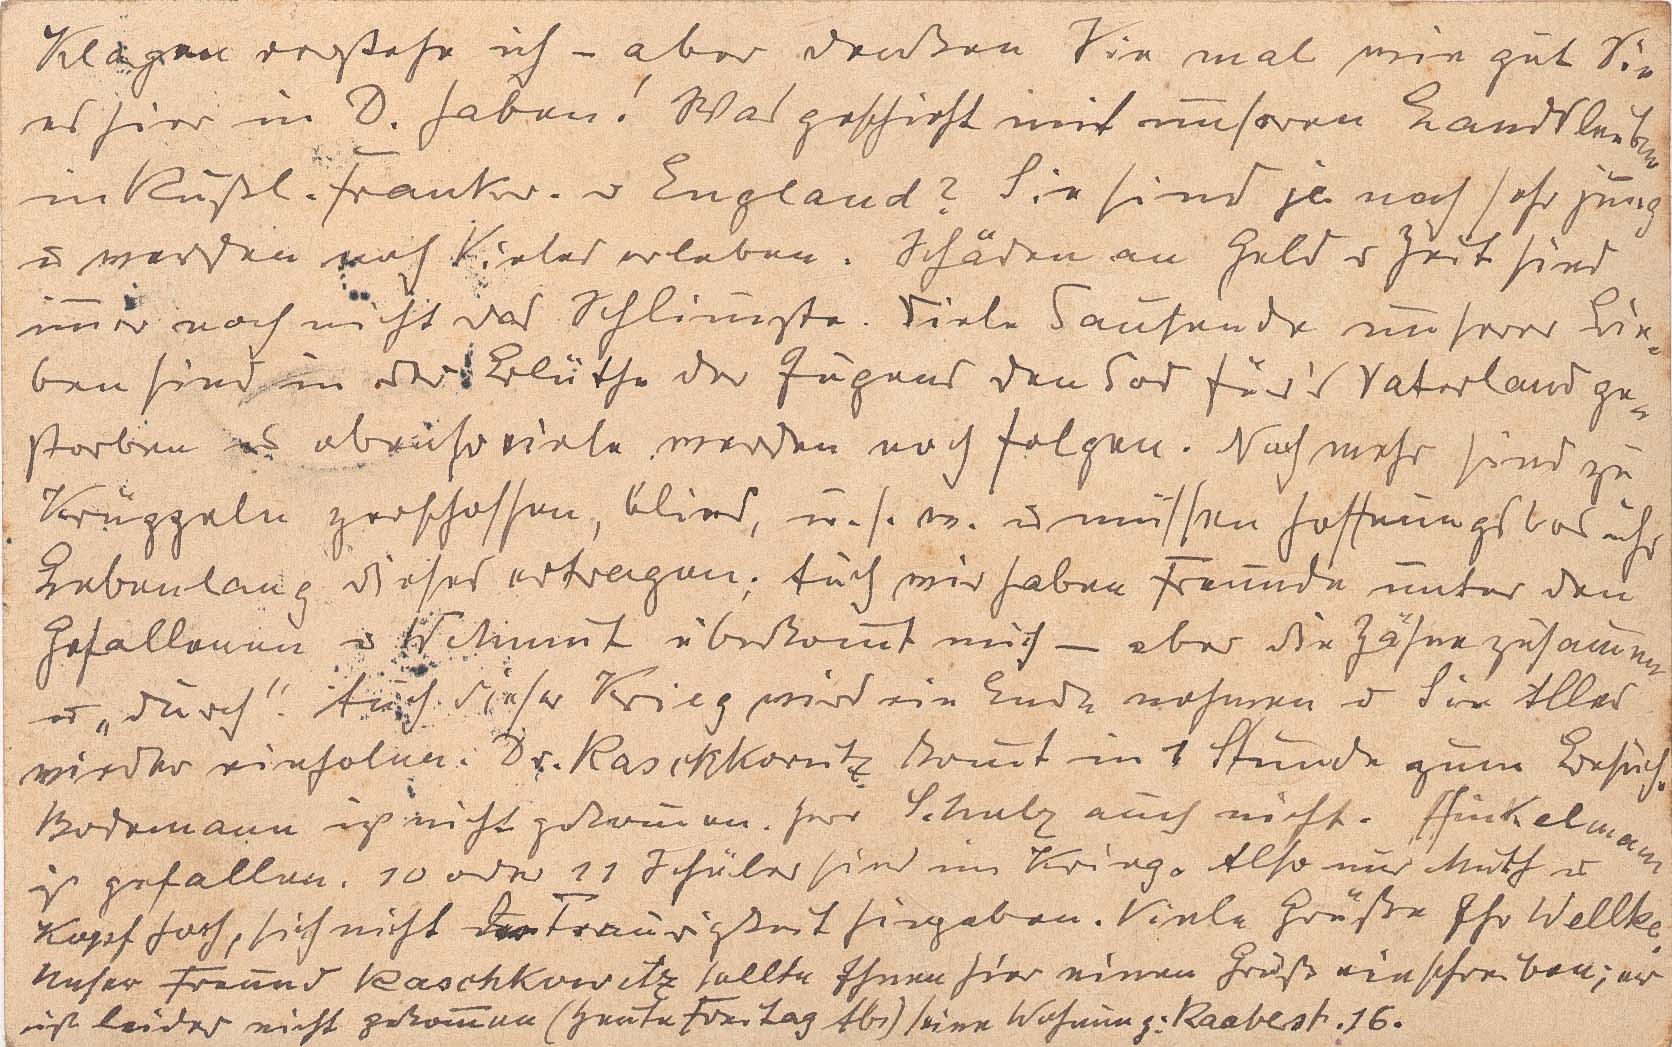 Klagen verstehe ich – aber denken Sie mal wie gut Sie
es hier in D. haben! Was geschieht mit unseren Landsleuten
in Rußl. Frankr. u England? Sie sind ja noch sehr jung
u werden noch Vieles erleben. Schäden an Geld u Zeit sind
im̅er noch nicht das Schlim̅ste. Viele Tausende unserer Lie-
ben sind in der Blüthe der Jugend den Tod für's Vaterland ge-
storben u ebensoviele werden noch folgen. Noch mehr sind zu
Krüppeln zerschossen, blind, u. s. w. u müssen hoffnungslos ihr
Lebenlang dieses ertragen. Auch wir haben Freunde unter den
Gefallenen u Wehmut überkom̅t mich – aber die Zähne zusam̅en
u „durch“. Auch dieser Krieg wird ein Ende nehmen u Sie Alles
wieder einholen. Dr. Raschkowitz kom̅t in 1 Stunde zum Besuch.
Bodemann ist nicht gekom̅en. Herr Schulz auch nicht. Hinkelmann
ist gefallen. 10 oder 11 Schüler sind im Krieg. Also nur Muth u
Kopf hoch, sich nicht der Traurigkeit hingeben. Viele Grüße Ihr Wellke.
Unser Freund Raschkowitz sollte Ihnen hier einen Gruß einschreiben; er
ist leider nicht gekom̅en (heute Freitag Ab.) seine Wohnung: Raabestr. 16.